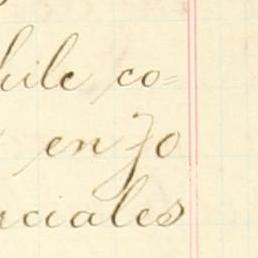 hile co=
en 30
rciales